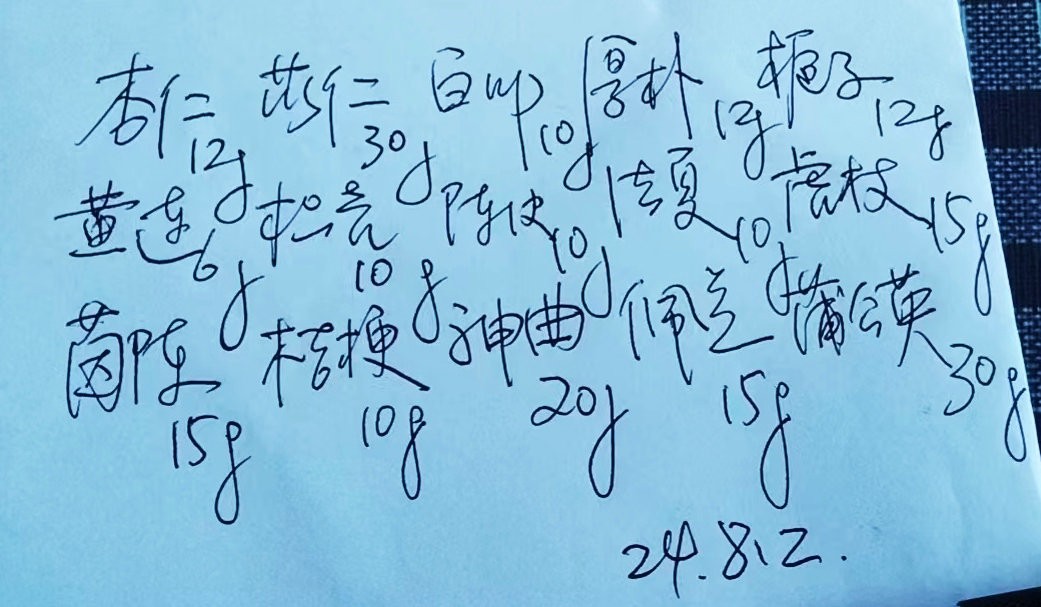 杏仁12g 苡仁30g 白叩10g 厚朴12g 栀子12g
黄连6g 枳壳10g 陈皮10g 法夏10g 虎杖15g
茵陈15g 桔梗10g 神曲20g 佩兰15g 蒲公英30g
24.8.2.